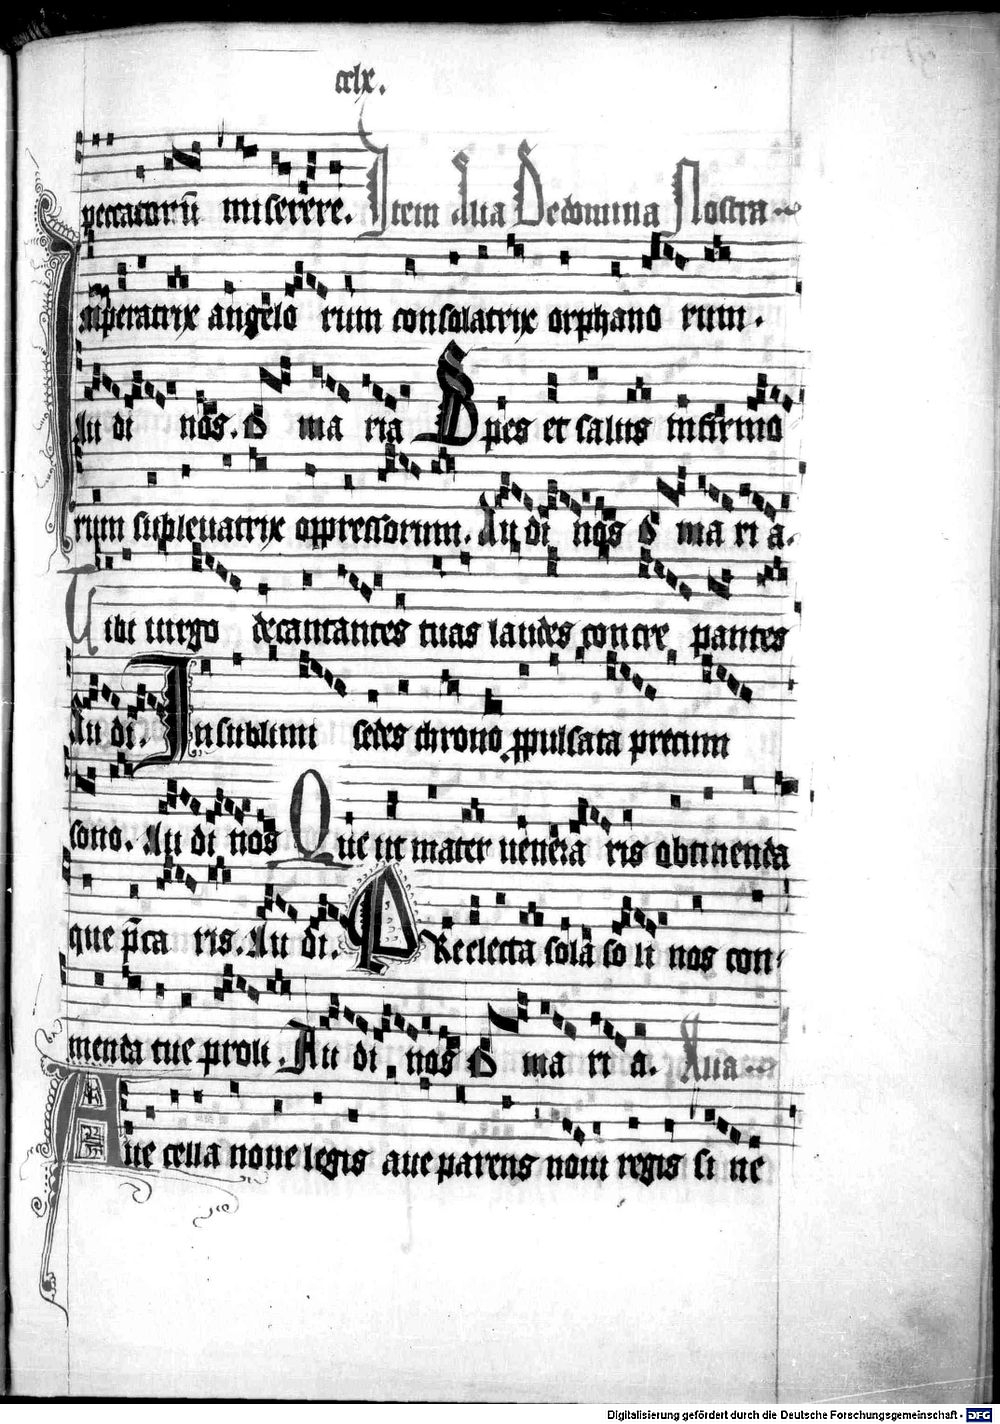 cclx.
peccatorū miserere. Item Alia De domina Nostra
Imperatrix angelo rum consolatrix orphano rum.
Au di nos. O ma ria Spes et salus infirmo
rum subleuatrix oppressorum. Au di nos O ma ri a.
Tibi uirgo decantantes tuas laudes concre pantes
Au di. In sublimi sedes throno ppulsata precum
sono. Au di nos Que ut mater uenera ris obtinenda
que p̄ca ris. Au di. Preelecta sola so li nos con
menda tue proli. Au di nos O ma ri a. Alia
Aue cella noue legis aue parens noui regis si nē
Digitalisierung gefördert durch die Deutsche Forschungsgemeinschaft - DFG